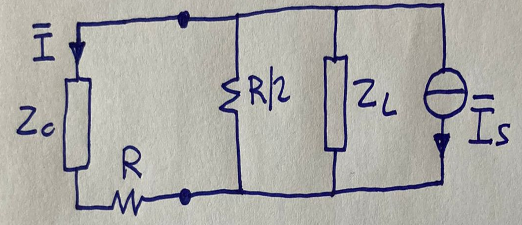 Ī
Z_C
R
R/2
Z_L
Ī_S